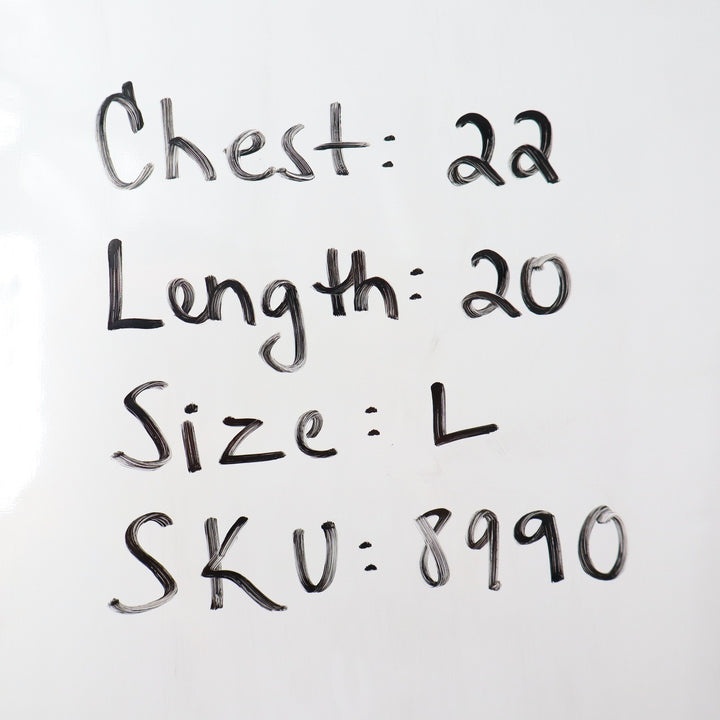 Chest: 22
Length: 20
Size: L
SKU: 8990